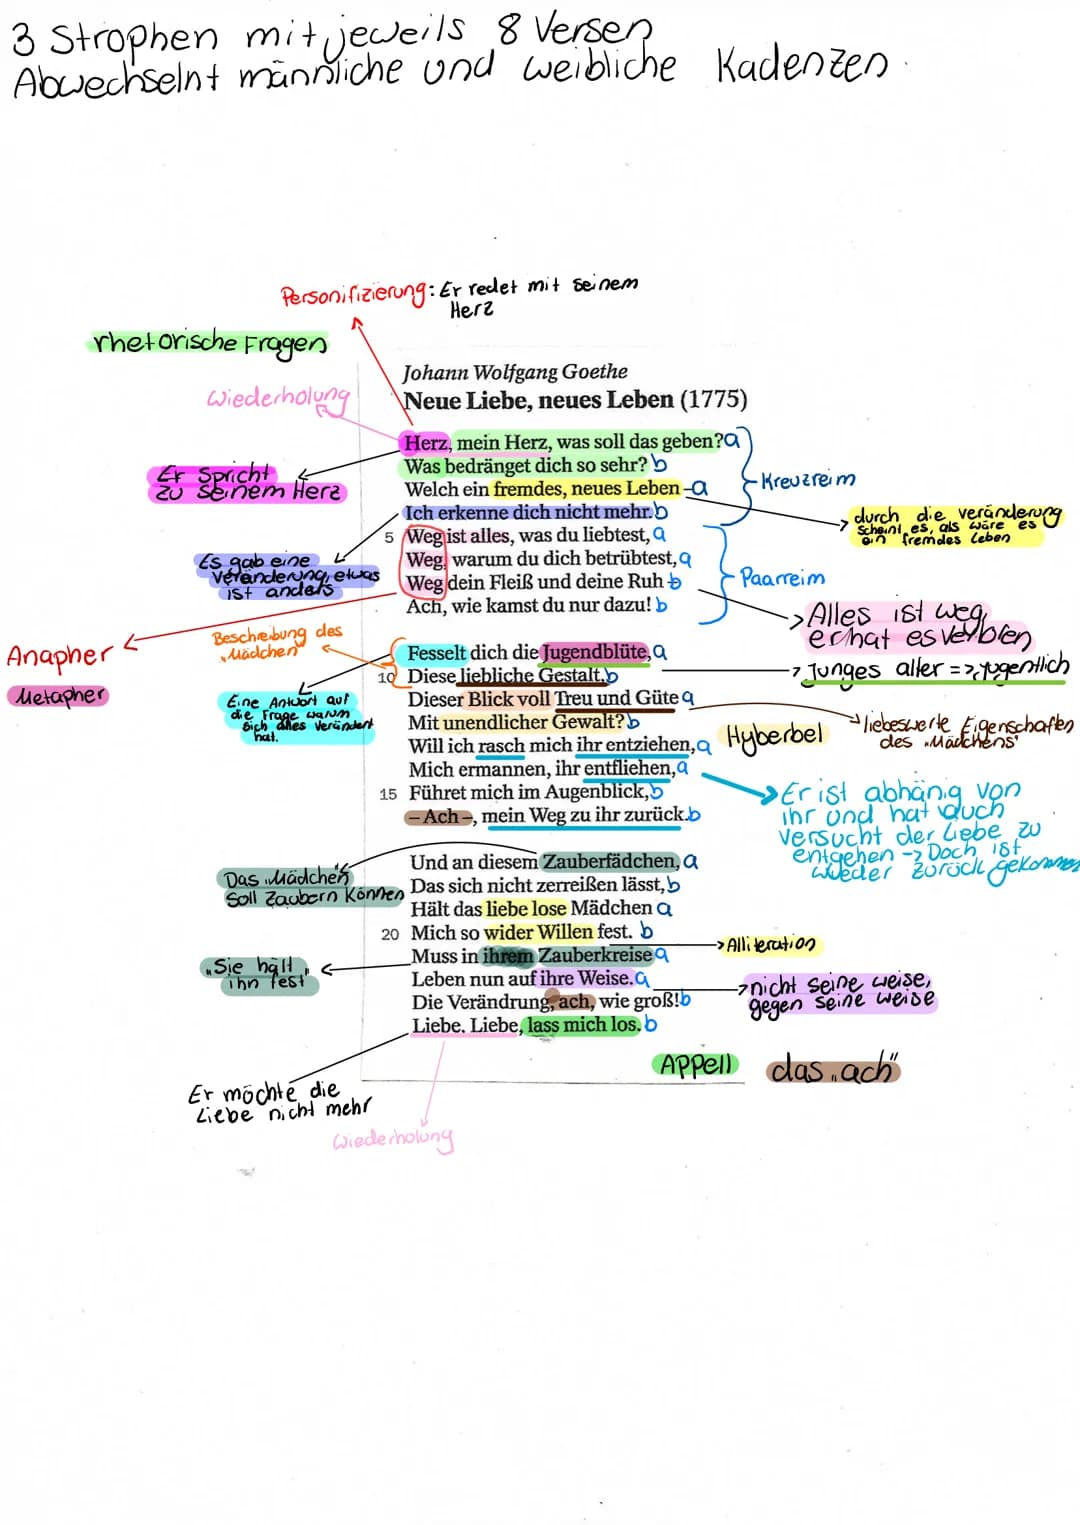 3 Strophen mit jeweils 8 Versen
Abwechselnt männliche und weibliche Kadenzen.
Personifizierung: Er redet mit seinem
Herz
rhetorische Fragen
Wiederholung
Johann Wolfgang Goethe
Neue Liebe, neues Leben (1775)
Herz, mein Herz, was soll das geben? a
Was bedränget dich so sehr? b
Welch ein fremdes, neues Leben – a
Ich erkenne dich nicht mehr. b
Kreuzreim
Er Spricht
zu seinem Herz
durch die veränderung
scheint es, als wäre es
ein fremdes Leben
Es gab eine
veränderung, etwas
ist anders
5 Weg ist alles, was du liebtest, a
Weg, warum du dich betrübtest, a
Weg dein Fleiß und deine Ruh – b
Ach, wie kamst du nur dazu! b
Paarreim
Alles ist weg,
er hat es verloren
Anapher
Metapher
Bescheibung des
„Mädchen"
Eine Antwort auf
die Frage warum
sich alles verändert
hat.
Fesselt dich die Jugendblüte, a
10 Diese liebliche Gestalt, b
Dieser Blick voll Treu und Güte a
Mit unendlicher Gewalt? b
Will ich rasch mich ihr entziehen, a
Mich ermannen, ihr entfliehen, a
15 Führet mich im Augenblick, b
– Ach –, mein Weg zu ihr zurück. b
Junges alter => jugentlich
Hyberbel
liebeswerte Eigenschaften
des „Mädchens"
Er ist abhänig von
ihr und hat auch
versucht der Liebe zu
entgehen -> Doch ist
wieder zurück gekommen
Das „Mädchen"
soll zaubern können
Und an diesem Zauberfädchen, a
Das sich nicht zerreißen lässt, b
Hält das liebe lose Mädchen a
20 Mich so wider Willen fest. b
Muss in ihrem Zauberkreise a
Leben nun auf ihre Weise. a
Die Verändrung, ach, wie groß! b
Liebe. Liebe, lass mich los. b
Alliteration
„Sie hält
ihn fest"
nicht seine weise,
gegen seine weise
Appell
das „ach"
Er möchte die
Liebe nicht mehr
Wiederholung